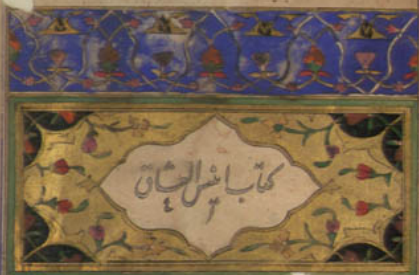 كتاب انيس العشاق